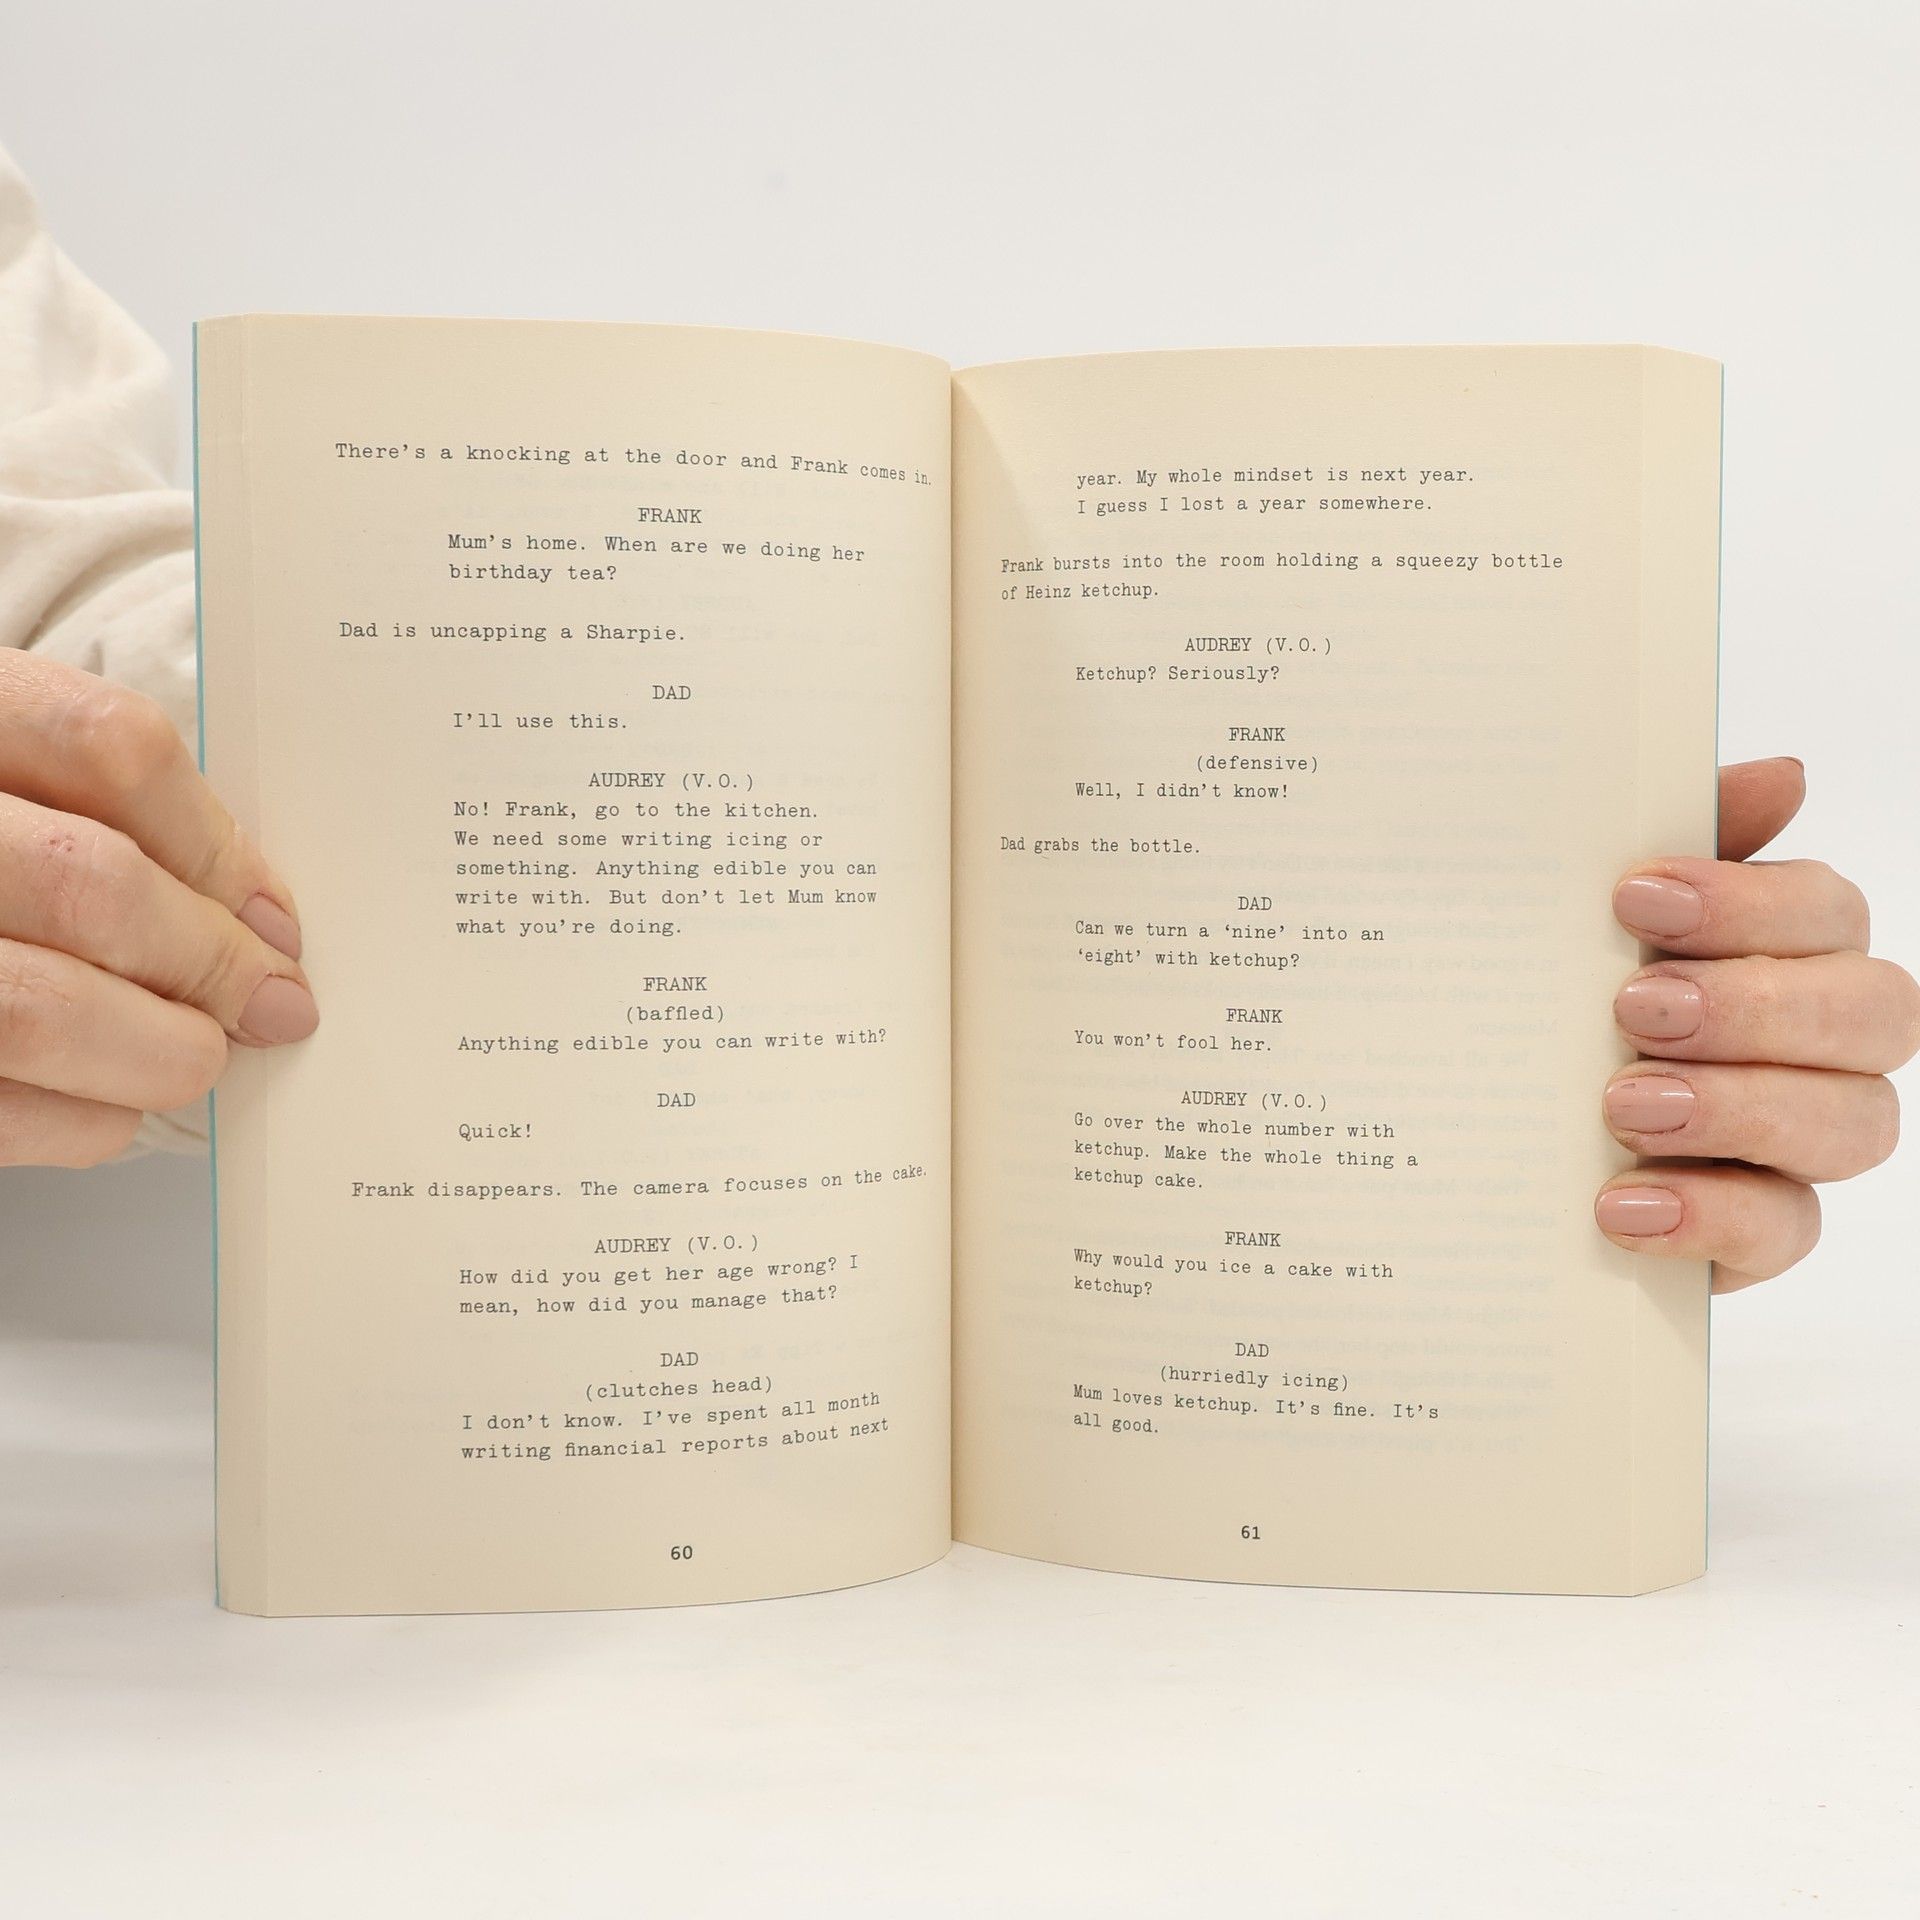 There's a knocking at the door and Frank comes in.
FRANK
Mum's home. When are we doing her
birthday tea?
Dad is uncapping a Sharpie.
DAD
I'll use this.
AUDREY (V.O.)
No! Frank, go to the kitchen.
We need some writing icing or
something. Anything edible you can
write with. But don't let Mum know
what you're doing.
FRANK
(baffled)
Anything edible you can write with?
DAD
Quick!
Frank disappears. The camera focuses on the cake.
AUDREY (V.O.)
How did you get her age wrong? I
mean, how did you manage that?
DAD
(clutches head)
I don't know. I've spent all month
writing financial reports about next
60
year. My whole mindset is next year.
I guess I lost a year somewhere.
Frank bursts into the room holding a squeezy bottle
of Heinz ketchup.
AUDREY (V.O.)
Ketchup? Seriously?
FRANK
(defensive)
Well, I didn't know!
Dad grabs the bottle.
DAD
Can we turn a ‘nine’ into an
‘eight’ with ketchup?
FRANK
You won't fool her.
AUDREY (V.O.)
Go over the whole number with
ketchup. Make the whole thing a
ketchup cake.
FRANK
Why would you ice a cake with
ketchup?
DAD
(hurriedly icing)
Mum loves ketchup. It's fine. It's
all good.
61